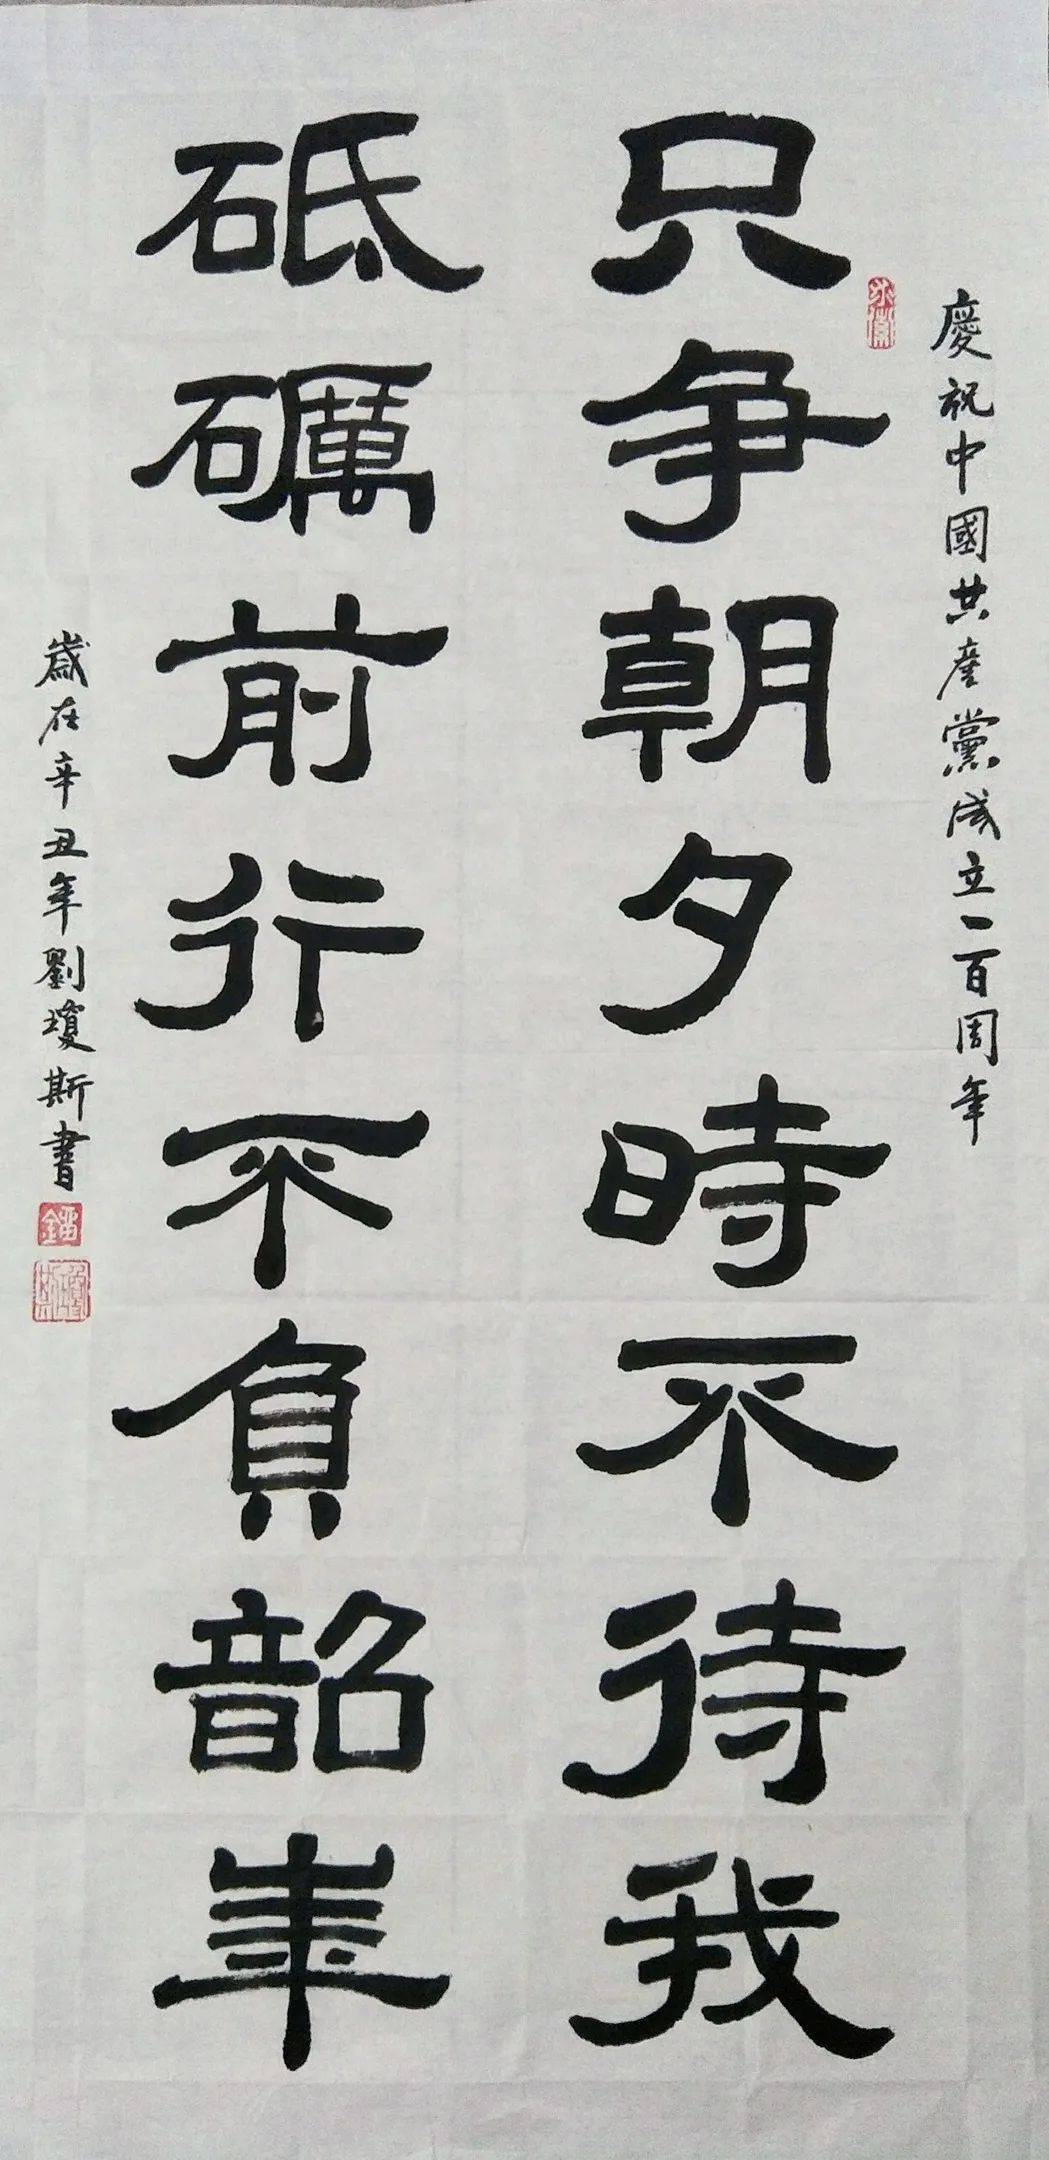 慶祝中國共產黨成立一百周年
只争朝夕時不待我
砥礪前行不負韶年
歲在辛丑年劉瓊斯書